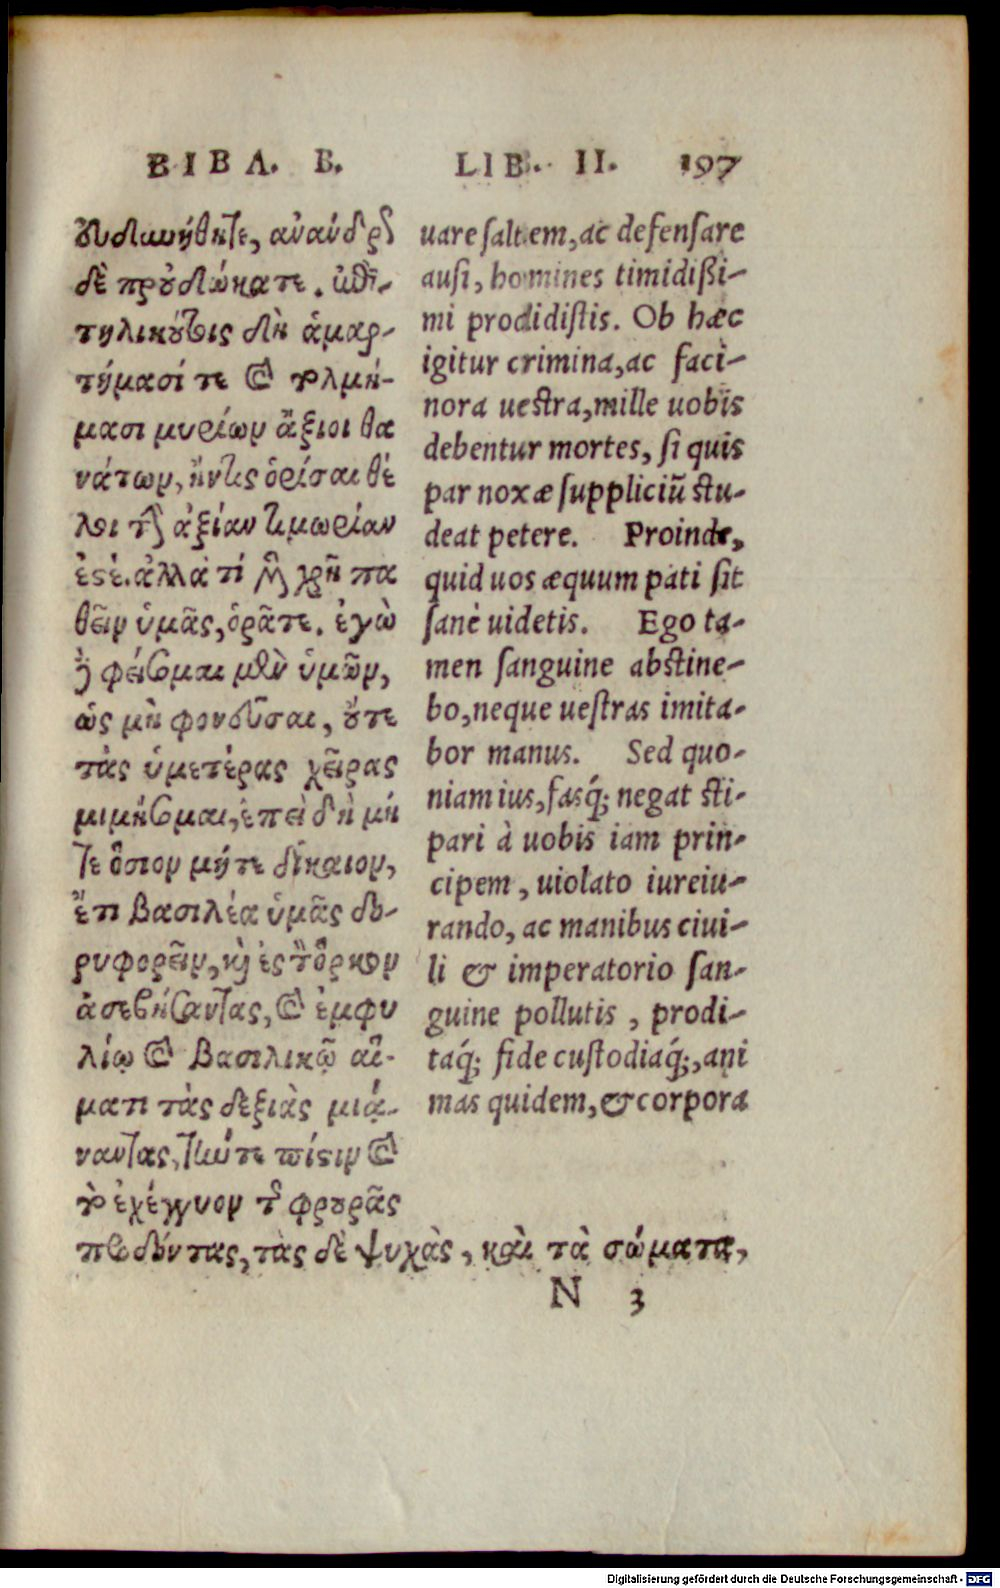 ΒΙΒΛ. Β.
οὐδιωήθητε, ἀνάνδρως
δὲ προὐδώκατε. ἐπὶ
τηλικούτοις δὴ ἁμαρ-
τήμασί τε καὶ τολμή-
μασι μυρίων ἄξιοι θα
νάτων, ἤντις ὁρίσαι θέ
λοι τὴν ἀξίαν τιμωρίαν
ἐστέ. ἀλλὰ τί μὲν χρῆν πα
θεῖν ὑμᾶς, ὁρᾶτε. ἐγὼ
δὲ φείσομαι μὲν ὑμῶν,
ὡς μὴ φονεῦσαι, οὔτε
τὰς ὑμετέρας χεῖρας
μιμήσομαι, ἐπεὶ δὴ μή
τε ὅσιον μήτε δίκαιον,
ἔτι βασιλέα ὑμᾶς δο-
ρυφορεῖν, καὶ ἐς τὸν ὅρκον
ἀσεβήσαντας, καὶ ἐμφυ
λίῳ καὶ βασιλικῷ αἵ-
ματι τὰς δεξιὰς μιά-
ναντας, τήν τε πίστιν καὶ
τὸ ἐχέγγυον τῆς φρουρᾶς
προδόντας, τὰς δὲ ψυχὰς, καὶ τὰ σώματα,
LIB. II. 197
uare saltem, ac defensare
ausi, homines timidißi-
mi prodidistis. Ob hæc
igitur crimina, ac faci-
nora uestra, mille uobis
debentur mortes, si quis
par noxæ suppliciũ stu-
deat petere. Proinde,
quid uos æquum pati sit
sanè uidetis. Ego ta-
men sanguine abstine-
bo, neque uestras imita-
bor manus. Sed quo-
niam ius, fasq́; negat sti-
pari à uobis iam prin-
cipem, uiolato iureiu-
rando, ac manibus ciui-
li & imperatorio san-
guine pollutis, prodi-
taq́; fide custodiaq́;, ani
mas quidem, & corpora
N 3
Digitalisierung gefördert durch die Deutsche Forschungsgemeinschaft - DFG